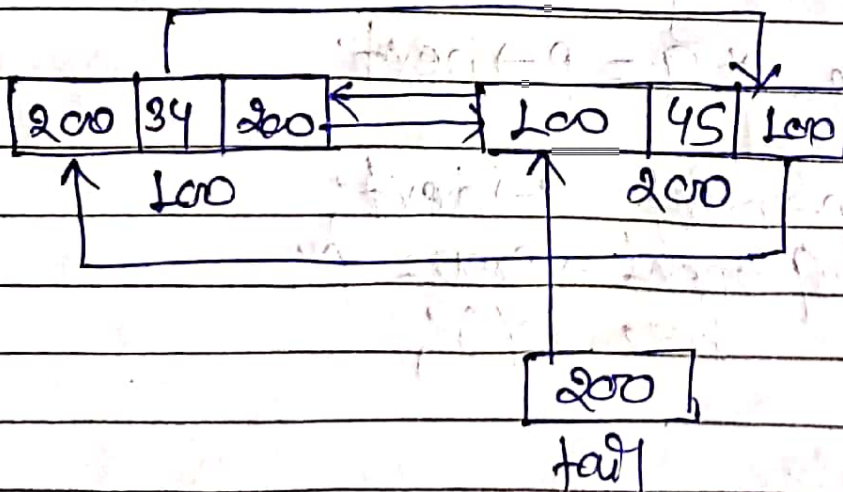 200 34 200 100 45 100
100 200
200
tail